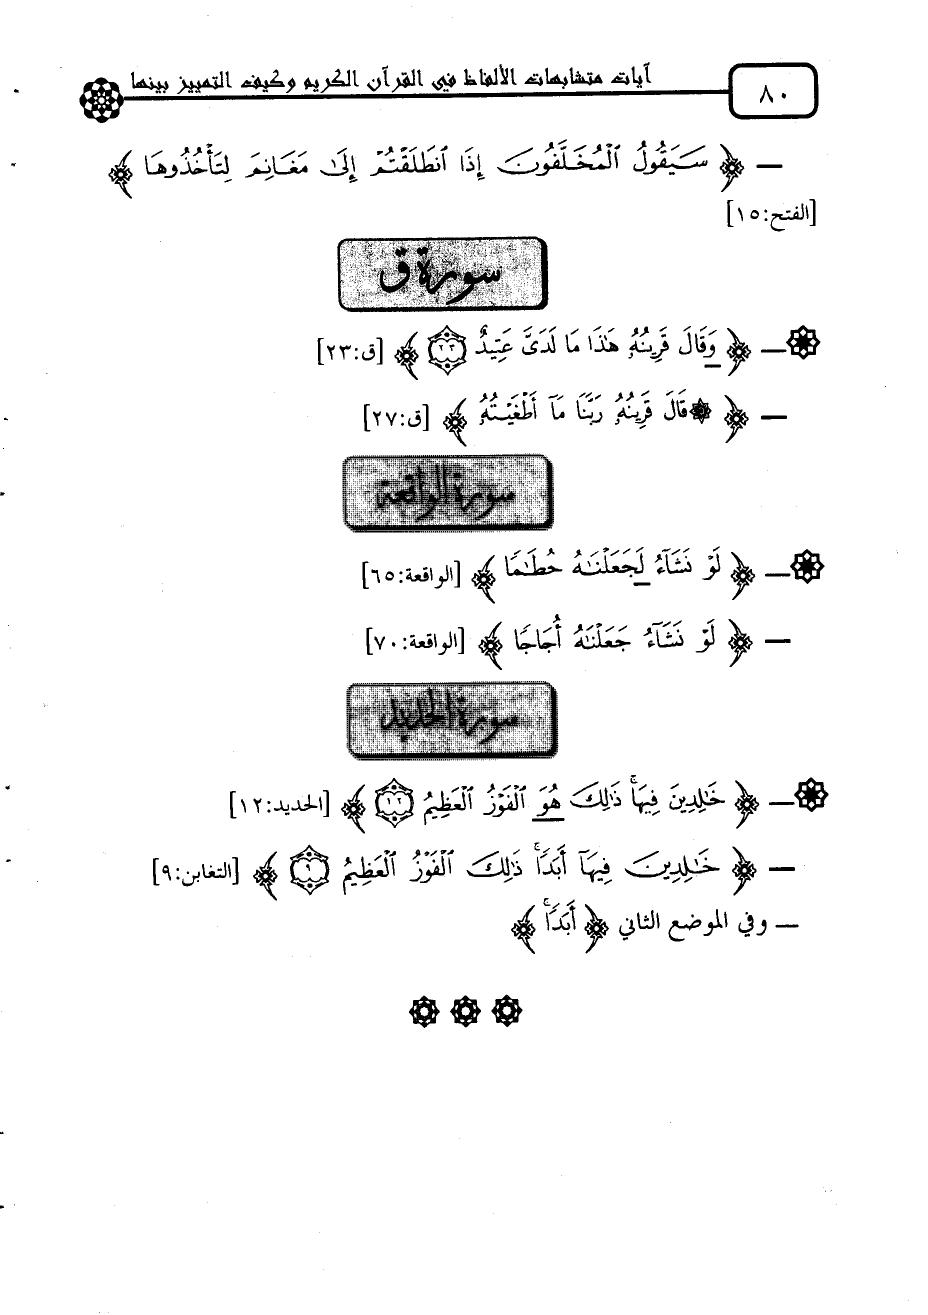 آيات متشابهات الألفاظ في القرآن الكريم وكيف التمييز بينها
٨٠
— ﴿ سَيَقُولُ ٱلْمُخَلَّفُونَ إِذَا ٱنطَلَقْتُمْ إِلَىٰ مَغَانِمَ لِتَأْخُذُوهَا ﴾
[الفتح:١٥]
سورة ق
— ﴿ وَقَالَ قَرِينُهُۥ هَٰذَا مَا لَدَىَّ عَتِيدٌ ٢٣ ﴾ [ق:٢٣]
— ﴿ ۞ قَالَ قَرِينُهُۥ رَبَّنَا مَآ أَطْغَيْتُهُۥ ﴾ [ق:٢٧]
سورة الواقعة
— ﴿ لَوْ نَشَآءُ لَجَعَلْنَٰهُ حُطَٰمًا ﴾ [الواقعة:٦٥]
— ﴿ لَوْ نَشَآءُ جَعَلْنَٰهُ أُجَاجًا ﴾ [الواقعة:٧٠]
سورة الحديد
— ﴿ خَٰلِدِينَ فِيهَا ۚ ذَٰلِكَ هُوَ ٱلْفَوْزُ ٱلْعَظِيمُ ١٢ ﴾ [الحديد:١٢]
— ﴿ خَٰلِدِينَ فِيهَآ أَبَدًا ۚ ذَٰلِكَ ٱلْفَوْزُ ٱلْعَظِيمُ ٩ ﴾ [التغابن:٩]
— وفي الموضع الثاني ﴿ أَبَدًا ۚ ﴾